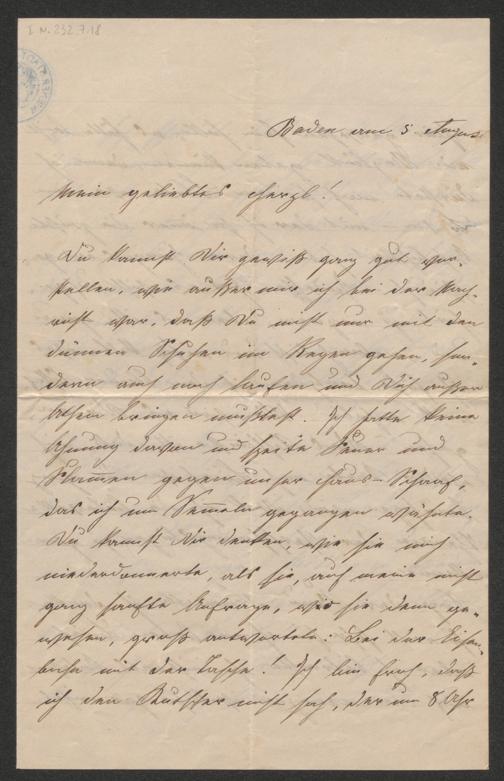 I N. 232.718
Baden am 5. August
Mein geliebtes Herzl!
Du kannst Dir gewiß ganz gut vor-
stellen, wie außer mir ich bei der Nach-
richt war, daß Du nicht nur mit den
dünnen Schuhen im Regen gehen, son-
dern auch noch laufen und Dich außer
Athem bringen mußtest. Ich hatte keine
Ahnung davon und speite Feuer und
Flammen gegen unser Haus-Schaaf,
das ich um Semmeln gegangen wähnte.
Du kannst Dir denken, wie sie mich
niederdonnerte, als sie, auf meine nicht
ganz sanfte Anfrage, wo sie denn ge-
wesen, groß antwortete: Bei der Eisen-
bahn mit der Tasche! Ich bin froh, daß
ich den Kutscher nicht sah, der um 8 Uhr